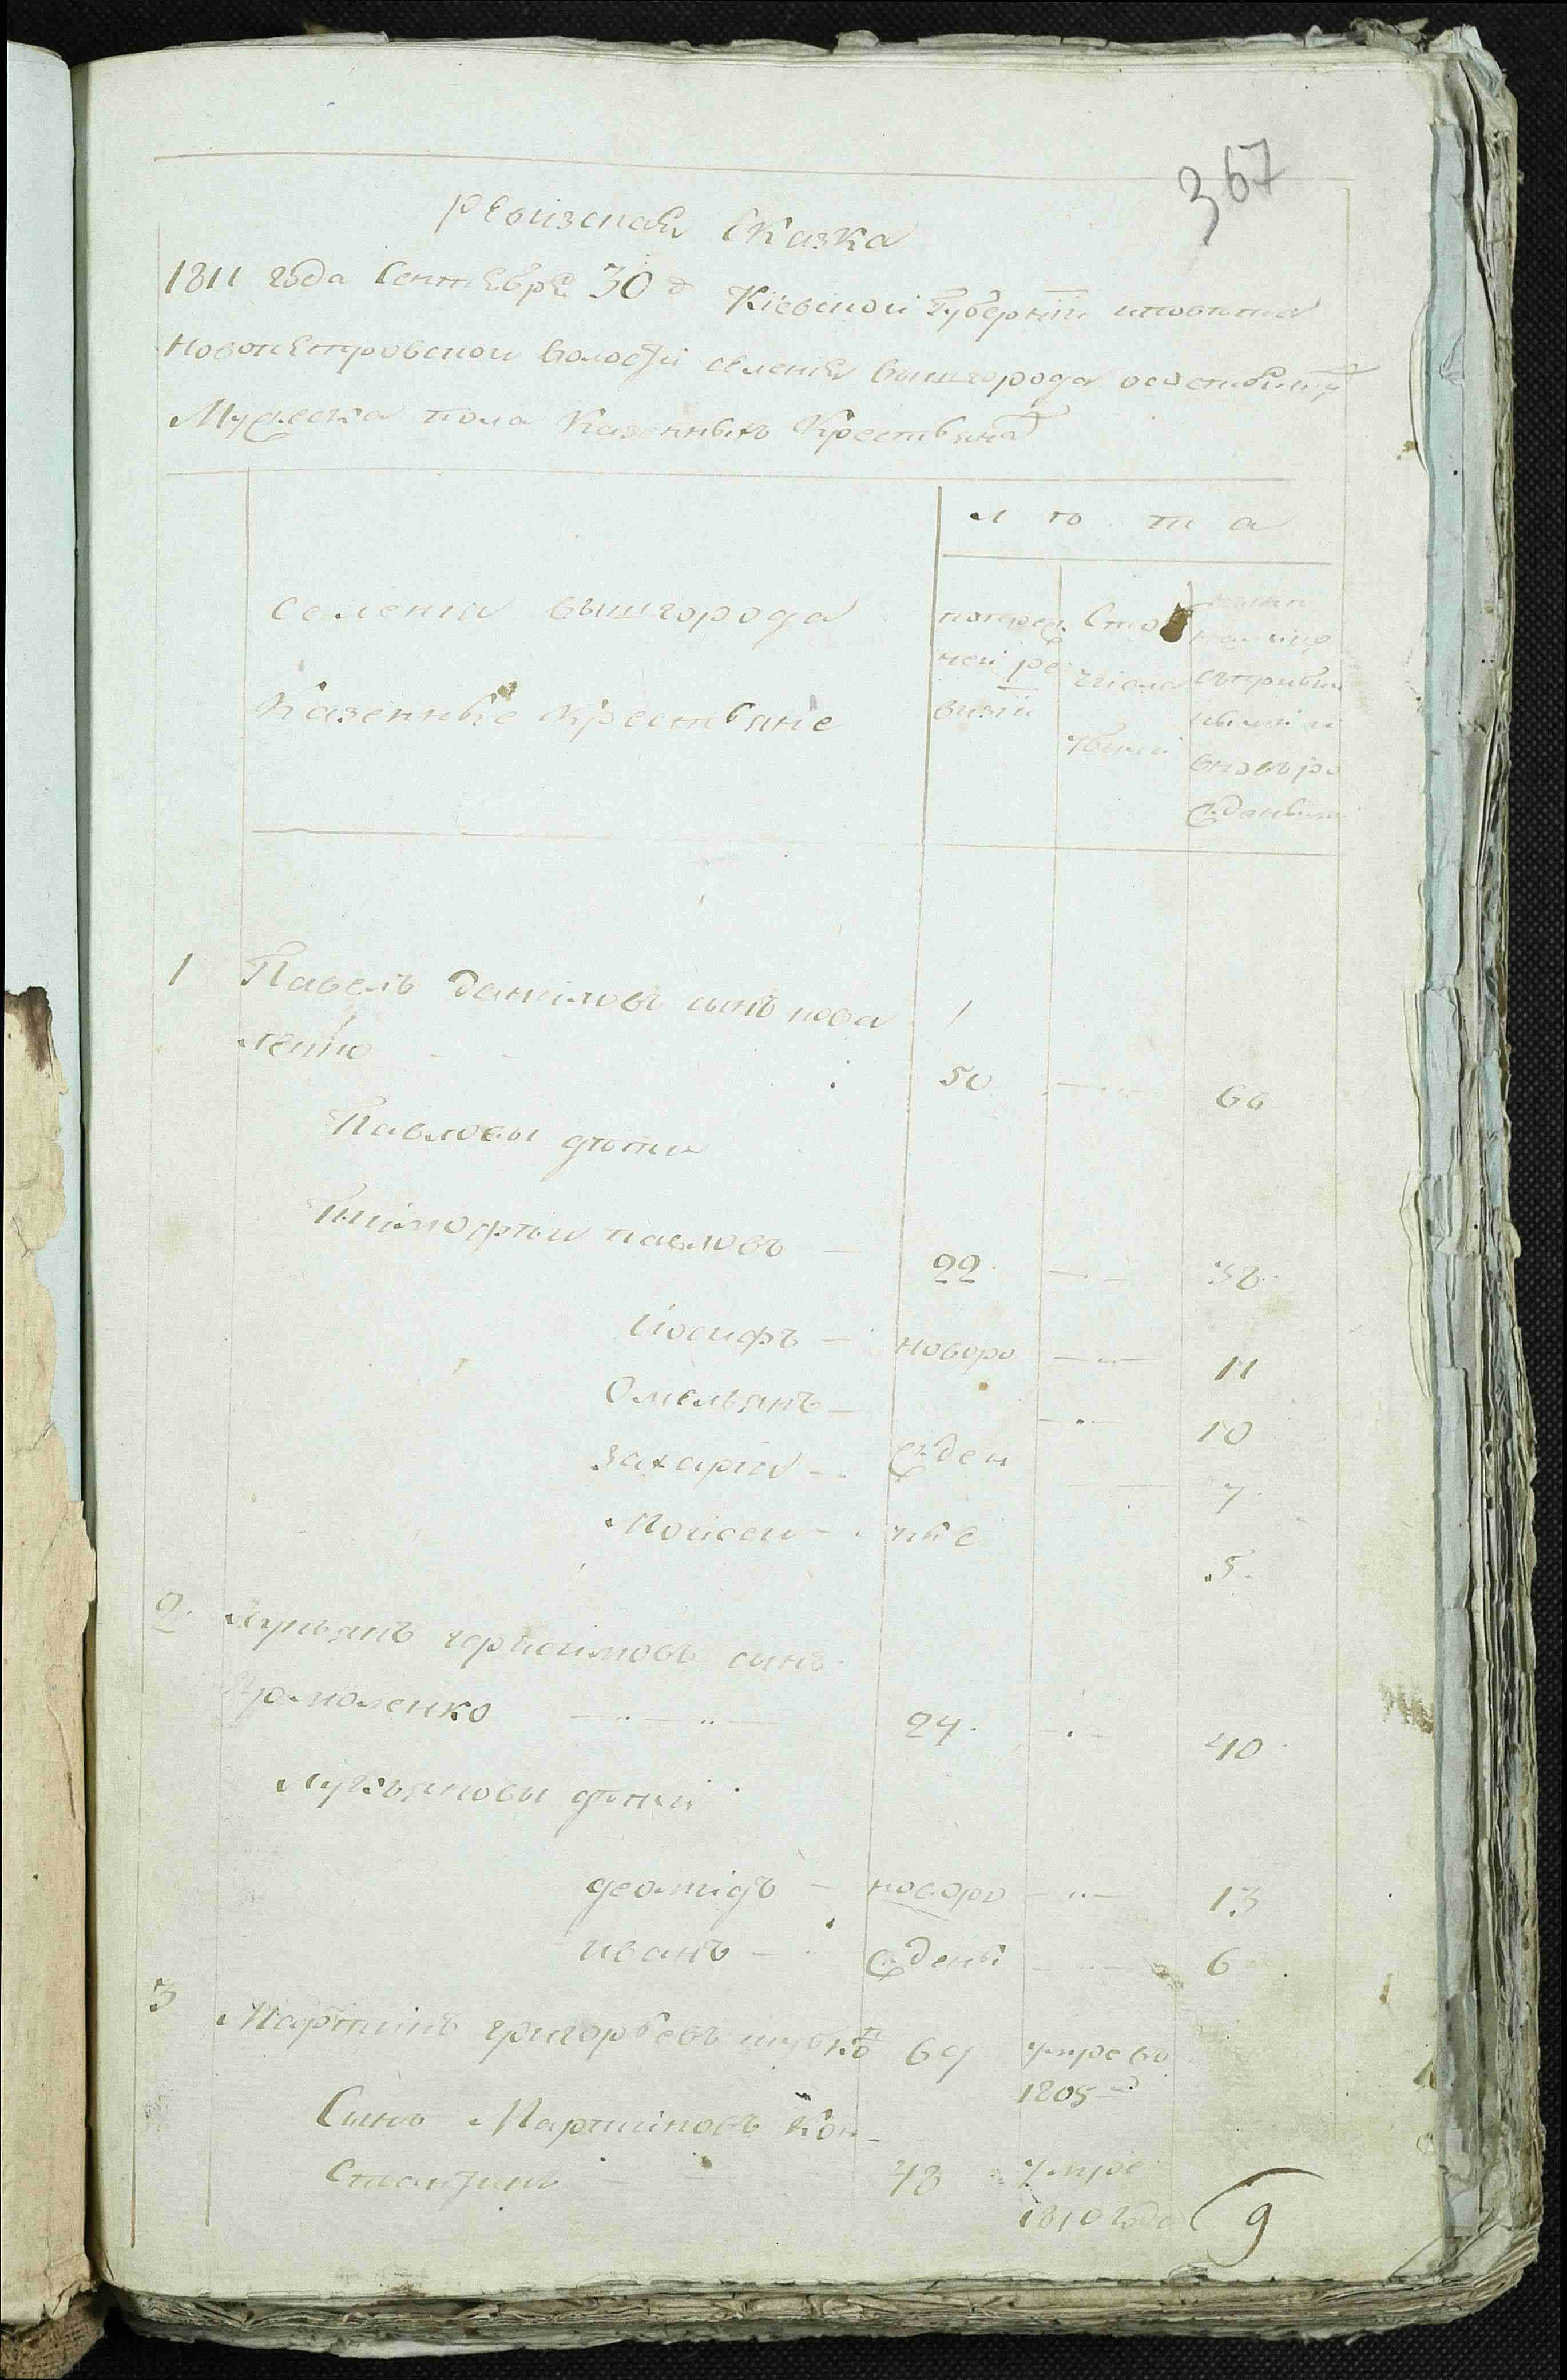 367
Ревизская Сказка
1811 года Сентебре 30 д Кіевской Губерніи и повѣта
Новопетровской волости селения вышгорода о состоящих
Мужеска пола Казенныхъ Крестьяна
лѣта
Селения вышгорода
Казенные Крестьяне
попред
ней ре
визіи
Стого
числа
нынѣ
на лицо
съ прибы
лыми и
вновь ро
жденным
1 Павелъ даниловъ сынъ кова
ленко 50 66
Павловы дѣти
Тимофѣи павловъ 22 38
Иосифъ новоро 11
Омельянъ 10
захарии жден 7
Моисеи ные 5
2 Лукьянъ герасимовъ сынъ
Ермоленко 24 40
Лукъяновы дѣти
деомидъ новоро 13
иванъ ждены 6
3 Мартинъ григорьевъ 69 умре во
1805
Сынъ Мартиновъ Кон
стантинъ 48 умре
1810 года 9